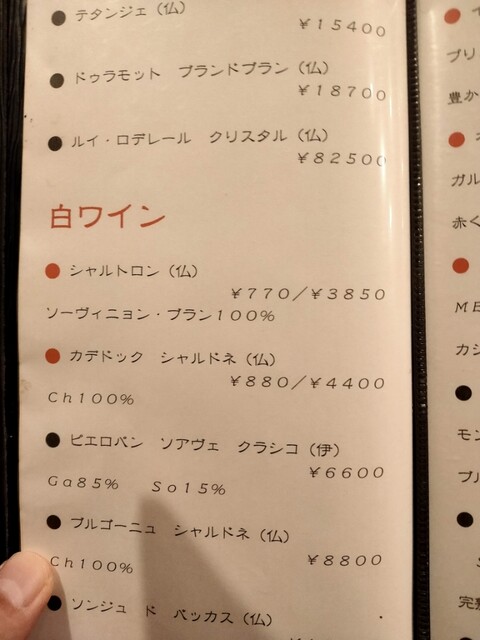 ● テタンジェ（仏）
￥１５４００
● ドゥラモット　ブランドブラン（仏）
￥１８７００
● ルイ・ロデレール　クリスタル（仏）
￥８２５００
白ワイン
● シャルトロン（仏）
￥７７０／￥３８５０
ソーヴィニョン・ブラン１００％
● カデドック　シャルドネ（仏）
￥８８０／￥４４００
Ｃｈ１００％
● ピエロパン　ソアヴェ　クラシコ（伊）
￥６６００
Ｇａ８５％　Ｓｏ１５％
● ブルゴーニュ　シャルドネ（仏）
￥８８００
Ｃｈ１００％
● ソンジュ　ド　バッカス（仏）
ブリ
豊か
ガル
赤く
ＭＥ
カシ
モン
ブル
完熟